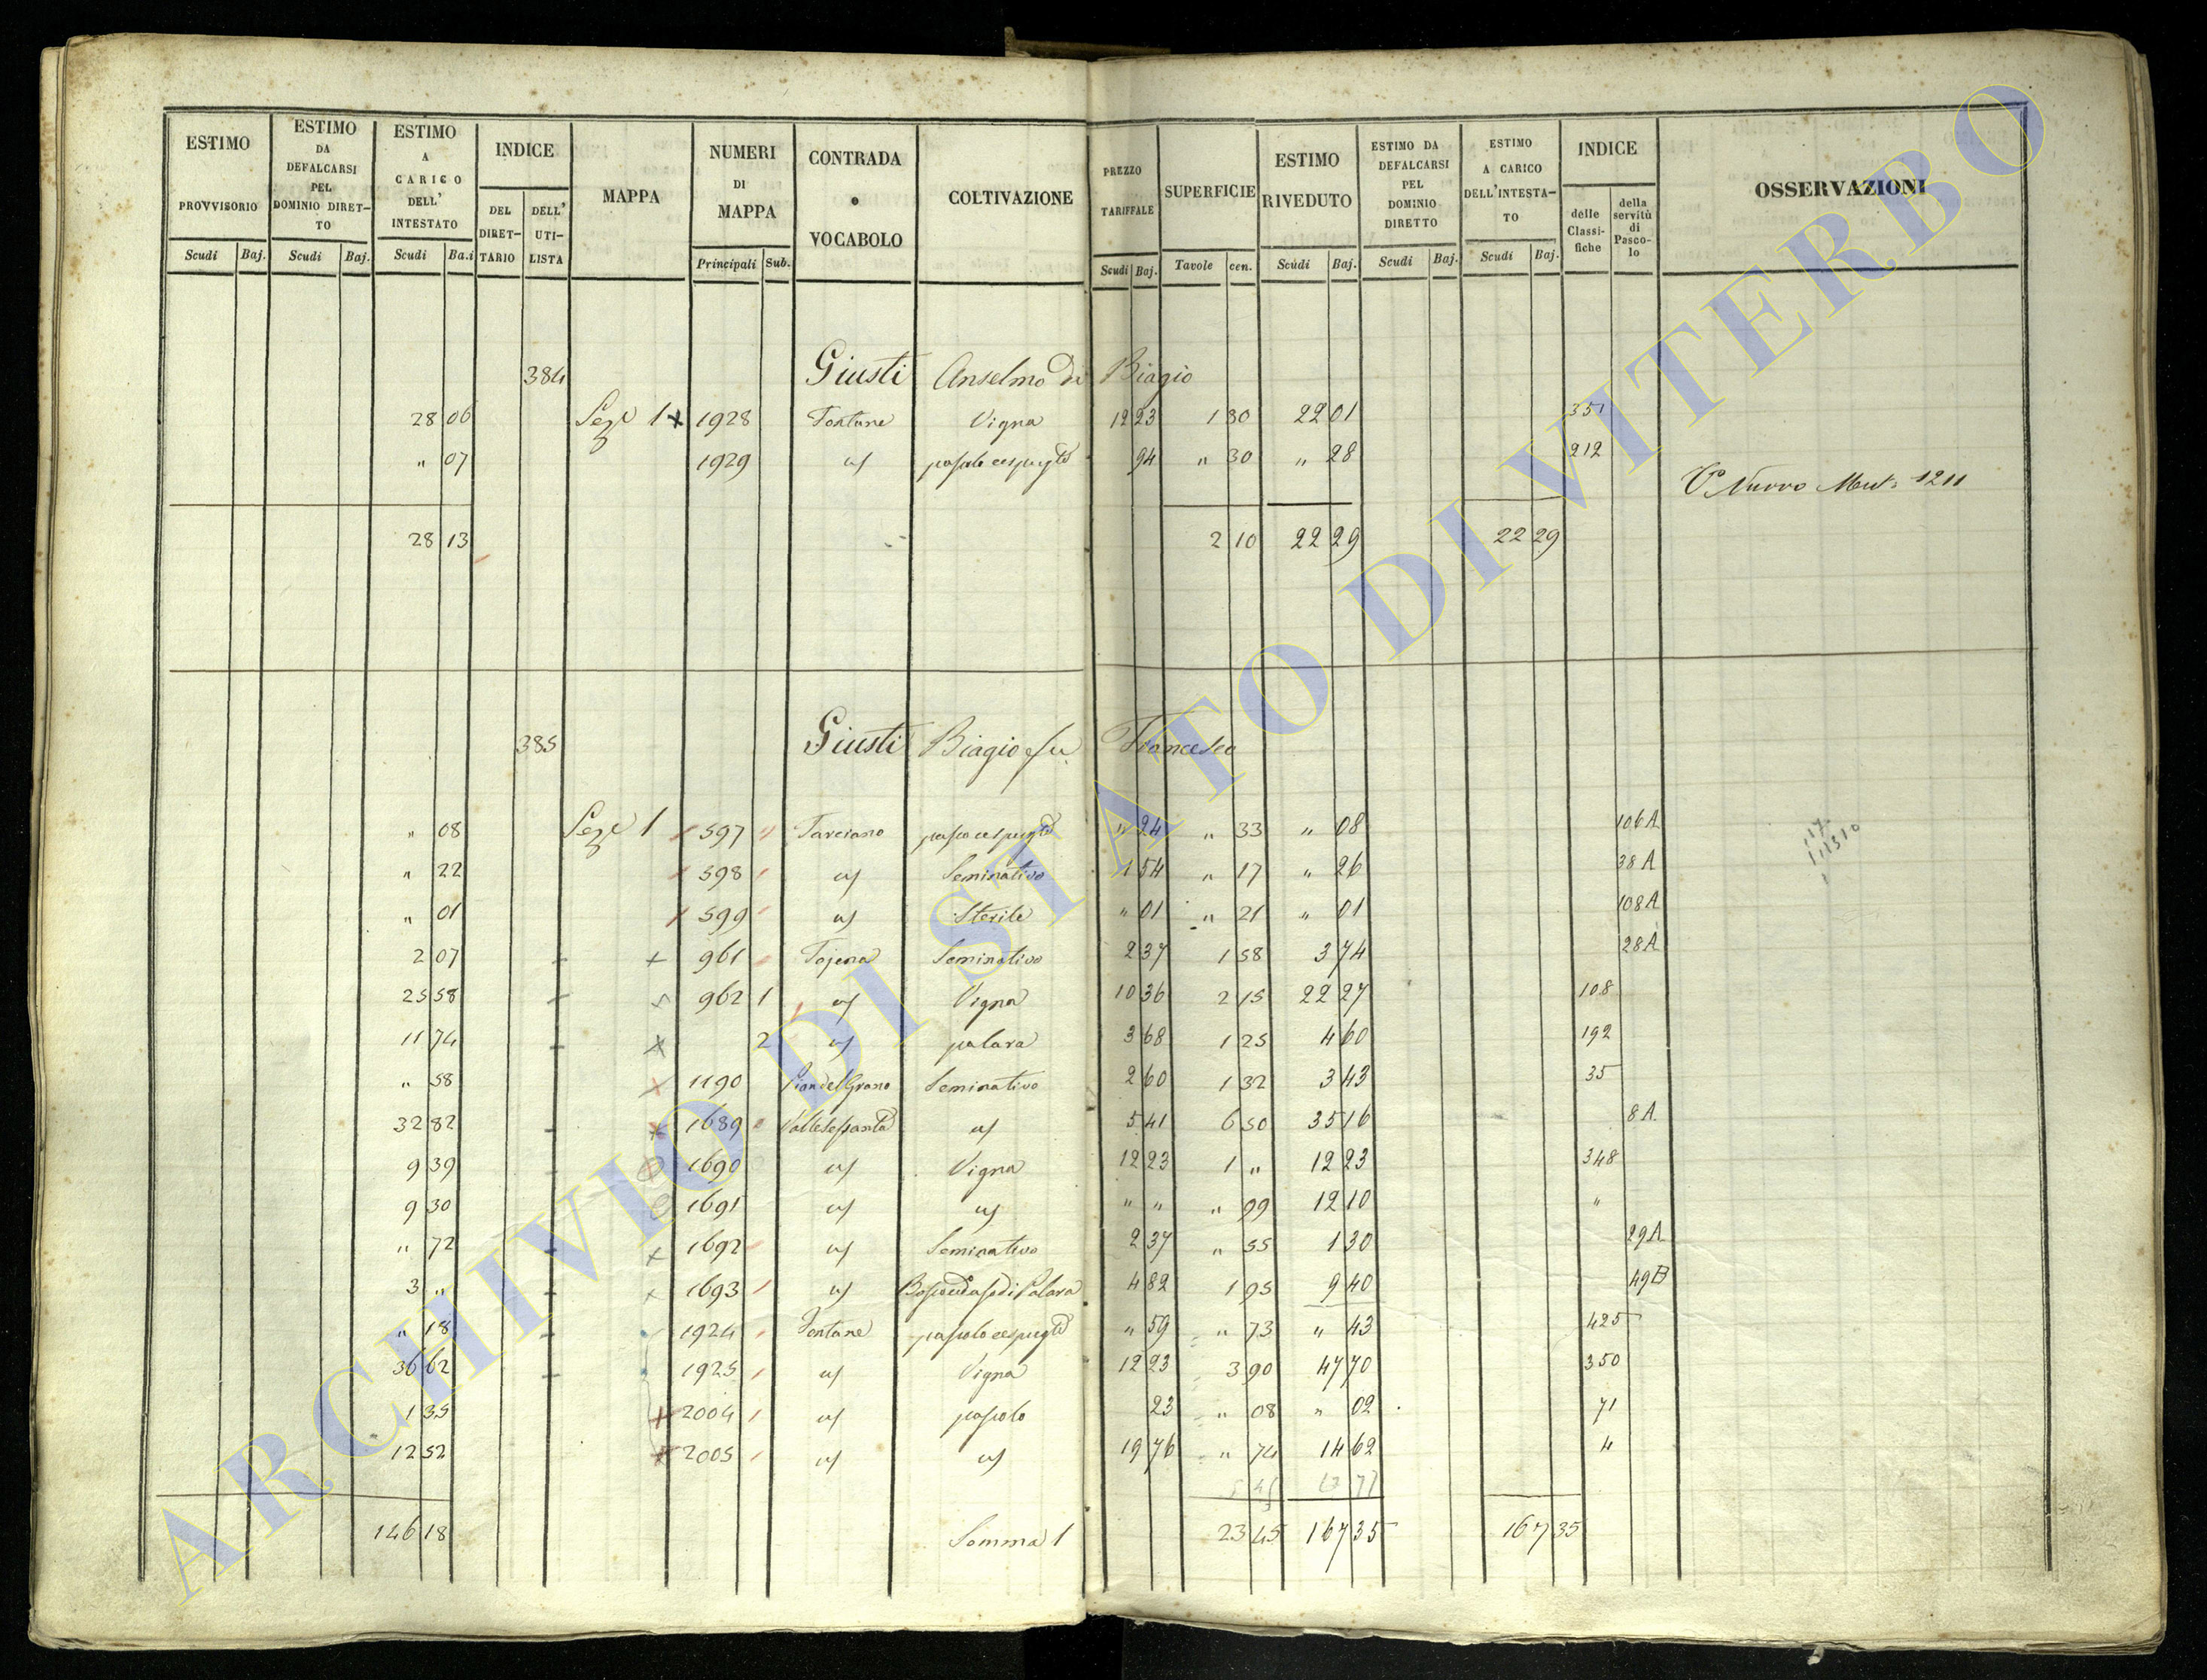 ESTIMO PROVVISORIO Scudi Baj.
ESTIMO DA DEFALCARSI PEL DOMINIO DIRETTO Scudi Baj.
ESTIMO A CARICO DELL' INTESTATO Scudi Ba.i
INDICE DEL DIRETTARIO DELL' UTILISTA
MAPPA
NUMERI DI MAPPA Principali Sub.
CONTRADA o VOCABOLO
COLTIVAZIONE
PREZZO TARIFFALE Scudi Baj.
SUPERFICIE Tavole cen.
ESTIMO RIVEDUTO Scudi Baj.
ESTIMO DA DEFALCARSI PEL DOMINIO DIRETTO Scudi Baj.
ESTIMO A CARICO DELL'INTESTATO Scudi Baj.
INDICE delle Classifiche della servitù di Pascolo
OSSERVAZIONI
384 Giusti Anselmo di Biagio
28 06 Sez.e 1 x 1928 Fontane Vigna 12 23 1 80 22 01 351
" 07 1929 " 30 " 28 212
Nuovo Mut. 1211
28 13 2 10 22 29 22 29
385 Giusti Biagio fu Francesco
" 08 Sez.e 1 597 Tarciano " 24 " 33 " 08 106 A
" 22 598 Seminativo 1 54 " 17 " 26 38 A
" 01 599 Sterile " 01 " 21 " 01 108 A
2 07 961 Tojena Seminativo 2 37 1 58 3 74 28 A
25 58 962 1 Vigna 10 36 2 15 22 27 108
11 74 2 palara 3 68 1 25 4 60 192
" 58 1190 Pian del Grano Seminativo 2 60 1 32 3 43 35
32 82 1689 5 41 6 50 35 16 8 A
9 39 1690 Vigna 12 23 1 " 12 23 348
9 30 1691 " " " 99 12 10 "
" 72 1692 Seminativo 2 37 " 55 1 30 29 A
3 " 1693 4 82 1 95 9 40 49 B
" 18 1924 Fontane " 59 " 73 " 43 425
36 62 1925 Vigna 12 23 3 90 47 70 350
1 35 2004 pascolo 23 " 08 " 02 71
12 52 2005 19 76 " 74 14 62 4
146 18 Somma 1 23 45 167 35 167 35
ARCHIVIO DI STATO DI VITERBO